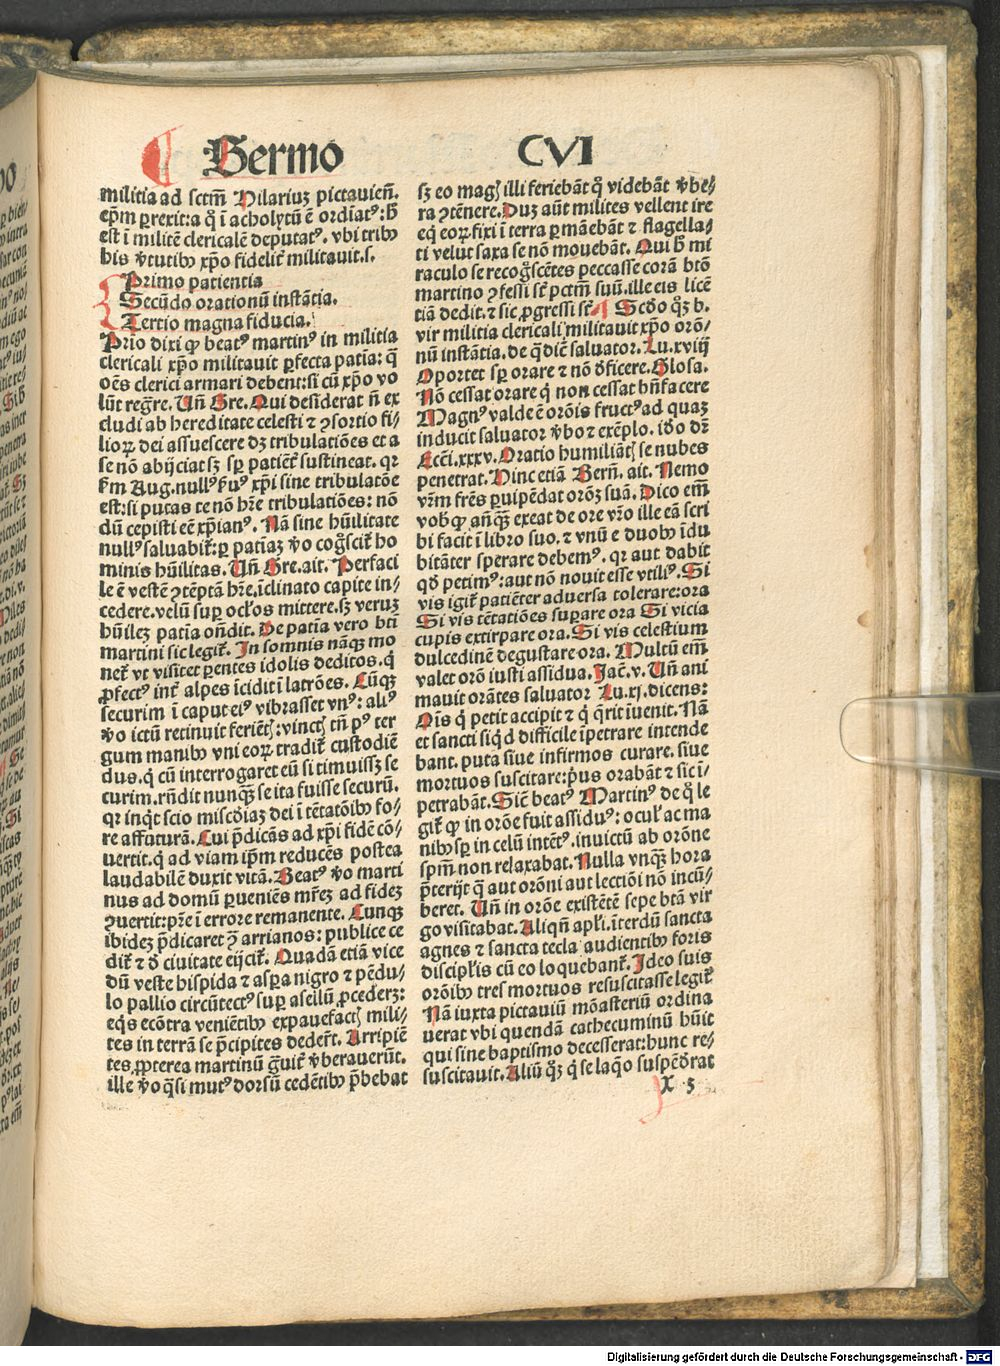 Sermo CVI
militia ad sctm̄ Hilariuꝫ pictauieñ.
ep̄m ꝑrexit: a q̇ ī acholytū ē ordīatꝰ: ħ
est ī militē clericalē deputatꝰ. vbi tribꝰ
bis v̓tutibꝰ xp̄o fidelit̓ militauit. s.
Primo patientia
Secūdo orationū instātia.
Tertio magna fiducia.
Prīo dixi ꝙ beatꝰ martinꝰ in militia
clericali xp̄o militauit ꝑfecta patīa: q̄
oēs clerici armari debent: si cū xp̄o vo
lūt regr̄e. Uñ Gre. Qui desiderat ñ ex
cludi ab hereditate celesti ⁊ ꝯsortio fi-
lioꝝ dei assuescere dꝫ tribulatiōes et a
se nō abijciat sꝫ sꝑ patiēt̓ sustineat. qꝛ
fm̄ Aug. nullꝰ ẜuꝰ xp̄i sine tribulatōe
est: si putas te nō hr̄e tribulatiōes: nō
dū cepisti eē xp̄ianꝰ. Nā sine hūilitate
nullꝰ saluabit̓: ꝑ patīaꝫ v̓o cog̃scit̓ ho
minis hūilitas. Uñ Gre. ait. Perfaci
le ē vestē ꝯtēptā hr̄e, īclinato capite in-
cedere. velū suꝑ ocl̓os mittere. sꝫ veruꝫ
hūileꝫ patīa oñdit. De patīa vero bt̄i
martini sic legit̓. In somnis nāqꝫ mo
net̓ vt visitet ꝑentes idolis deditos. q̇
ꝓfectꝰ int̓ alpes īcidit ī latrōes. Cūqꝫ
securim ī caput eiꝰ vibrasset vnꝰ: aliꝰ
v̓o ictū retinuit feriētꝭ: vinctꝭ tñ pꝰ ter
gum manibꝰ vni eoꝝ tradit̓ custodiē
dus. q̇ cū interrogaret eū si timuissꝫ se
curim. rñdit nunqꝫ̄ se ita fuisse securū.
qꝛ inq̇t scio miscd̓iaꝫ dei ī tētatōibꝰ fo-
re affuturā. Cui p̄dicās ad xp̄i fidē cō-
uertit. q̇ ad viam ip̄m reducēs postea
laudabilē duxit vitā. Beatꝰ v̓o marti
nus ad domū ꝑueniēs mr̄eꝫ ad fideꝫ
ꝯuertit: pr̄e ī errore remanente. Cunqꝫ
ibideꝫ p̄dicaret ꝯ̄ arrianos: publice ce
dit̓ ⁊ d̓ ciuitate eijcit̓. Quadā etiā vice
dū veste hispida ⁊ asꝑa nigro ⁊ pēdu-
lo pallio circūtectꝰ suꝑ asellū ꝓcederꝫ:
eq̇s ecōtra veniētibꝰ expauefactꝭ mili-
tes in terrā se p̄cipites dedert̓. Arripiē
tes, ꝓpterea martinū g̃uit̓ v̓berauerūt.
ille v̓o q̇si mutꝰ dorsū cedētibꝰ p̄bebat
sꝫ eo magꝭ illi feriebāt q̇ videbāt v̓be-
ra ꝯtēnere. Duꝫ aūt milites vellent ire
eq̇ eoꝝ fixi ī terra ꝑmāebāt ⁊ flagella-
ti velut saxa se nō mouebāt. Qui ħ mi
raculo se recog̃scētes peccasse corā bt̄o
martino ꝯfessi st̄ pctm̄ suū. ille eis licē
tiā dedit. ⁊ sic ꝓgressi st̄. Scd̓o qꝫ b.
vir militia clericali militauit xp̄o orō-
nū instātia. de q̄ dic̄t saluator. Lu. xviij
Oportet sꝑ orare ⁊ nō d̓ficere. Glosa.
Nō cessat orare q̇ non cessat bñfacere
Magnꝰ valde ē orōis fructꝰ ad quaꝫ
inducit saluator v̓bo ⁊ exēplo. id̓o dr̄
Ecci. xxxv. Oratio humiliātꝭ se nubes
penetrat. Hinc etiā Berñ. ait. Nemo
vr̄m fr̄es ꝑuipēdat orōꝫ suā. Dico em̄
vob ꝙ añqꝫ̄ exeat de ore vr̄o ille eā scri
bi facit ī libro suo. ⁊ vnū e duobꝰ īdu
bitāter sperare debemꝰ. qꝛ aut dabit
qd̓ petimꝰ: aut nō nouit esse vtiliꝰ. Si
vis igit̓ patiēter aduersa tolerare: ora
Si vis tētatiōes suꝑare ora Si vicia
cupis extirpare ora. Si vis celestium
dulcedinē degustare ora. Multū em̄
valet orō iusti assidua. Jac̄. v. Uñ ani
mauit orātes saluator Lu. xj. dicens:
Oīs q̇ petit accipit ⁊ q̇ q̄rit īuenit. Nā
et sancti siq̇d difficile īpetrare intende
bant. puta siue infirmos curare. siue
mortuos suscitare: p̓us orabāt ⁊ sic ī-
petrabāt. Sic̄ beatꝰ Martinꝰ de q̇ le
git̓ ꝙ in orōe fuit assiduꝰ: oculꝭ ac ma
nibꝰ sꝑ in celū intētꝰ. inuictū ab orōne
spm̄ non relaxabat. Nulla vnqꝫ̄ hora
p̄terijt q̄ aut orōni aut lectiōi nō incū-
beret. Uñ in orōe existētē sepe btā vir
go visitabat. Aliqñ apl̓i. īterdū sancta
agnes ⁊ sancta tecla audientibꝰ foris
discipl̓is cū eo loquebant̓. Ideo suis
orōibꝰ tres mortuos resuscitasse legit̓
Nā iuxta pictauiū mōasteriū ordina
uerat vbi quendā cathecuminū hūit
qui sine baptismo decesserat: hunc re-
suscitauit. Aliū qꝫ q̇ se laq̇o suspēd̓rat
X 5
Digitalisierung gefördert durch die Deutsche Forschungsgemeinschaft - DFG